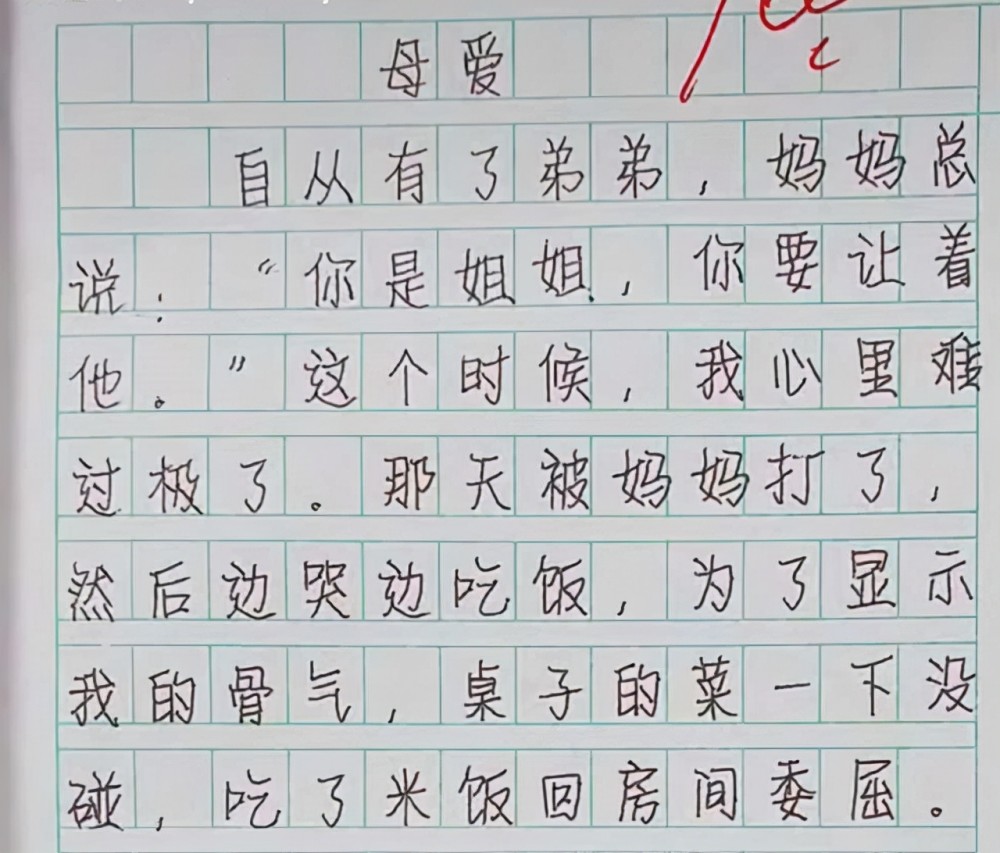 母爱
自从有了弟弟，妈妈总
说：“你是姐姐，你要让着
他。”这个时候，我心里难
过极了。那天被妈妈打了，
然后边哭边吃饭，为了显示
我的骨气，桌子的菜一下没
碰，吃了米饭回房间委屈。